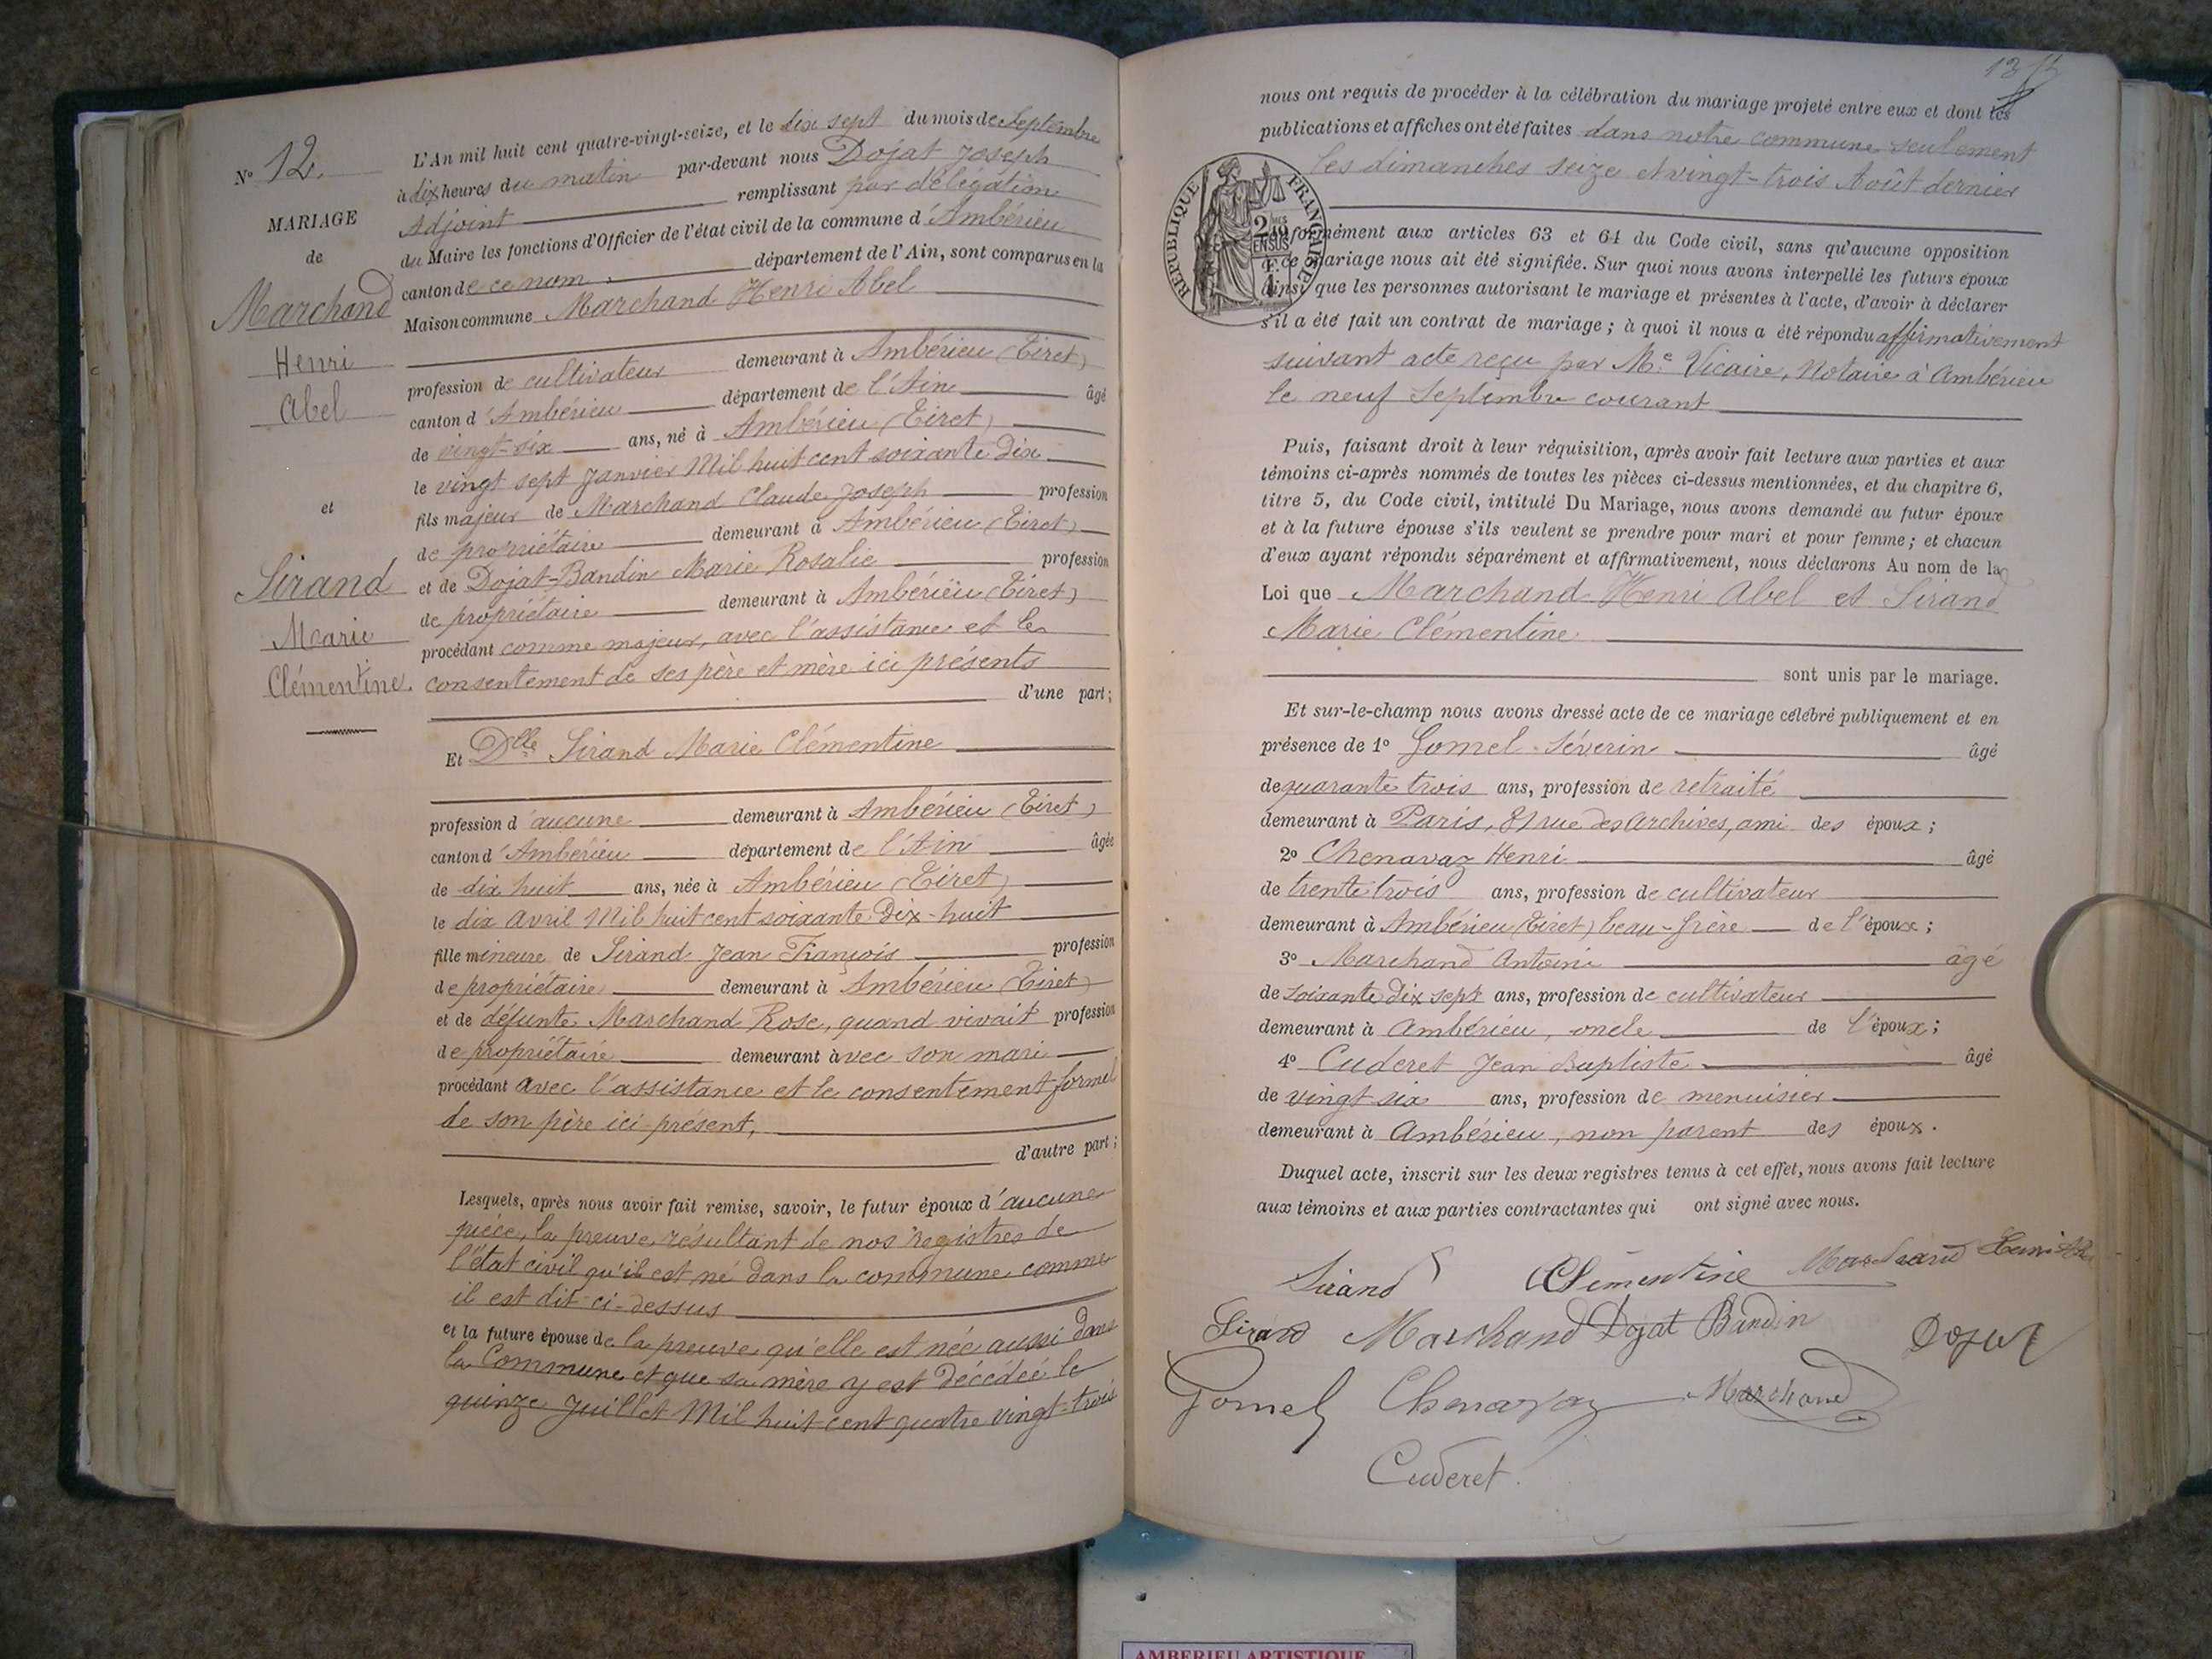 N° 12.
MARIAGE
de
Marchand
Henri
Abel
et
Sirand
Marie
Clémentine.
L'An mil huit cent quatre-vingt-seize, et le dix sept du mois de Septembre
à dix heures du matin par-devant nous Dojat Joseph
Adjoint remplissant par délégation
du Maire les fonctions d'Officier de l'état civil de la commune d'Ambérieu
canton de ce nom département de l'Ain, sont comparus en la
Maison commune Marchand Henri Abel
profession de cultivateur demeurant à Ambérieu (Tiret)
canton d'Ambérieu département de l'Ain âgé
de vingt-six ans, né à Ambérieu (Tiret)
le vingt sept Janvier Mil huit cent soixante Dix
fils majeur de Marchand Claude Joseph profession
de propriétaire demeurant à Ambérieu (Tiret)
et de Dojat-Bandin Marie Rosalie profession
de propriétaire demeurant à Ambérieu (Tiret)
procédant comme majeur, avec l'assistance et le
consentement de ses père et mère ici présents
d'une part;
Et Dlle Sirand Marie Clémentine
profession d'aucune demeurant à Ambérieu (Tiret)
canton d'Ambérieu département de l'Ain âgée
de dix huit ans, née à Ambérieu (Tiret)
le dix Avril Mil huit cent soixante Dix-huit
fille mineure de Sirand Jean François profession
de propriétaire demeurant à Ambérieu (Tiret)
et de défunte Marchand Rose, quand vivait profession
de propriétaire demeurant avec son mari
procédant avec l'assistance et le consentement formel
de son père ici présent,
d'autre part;
Lesquels, après nous avoir fait remise, savoir, le futur époux d'aucune
pièce, la preuve résultant de nos registres de
l'état civil qu'il est né dans la commune comme
il est dit ci-dessus
et la future épouse de la preuve qu'elle est née aussi dans
la Commune et que sa mère y est décédée le
quinze Juillet Mil huit cent quatre vingt-trois
nous ont requis de procéder à la célébration du mariage projeté entre eux et dont les
publications et affiches ont été faites dans notre commune seulement
les dimanches seize et vingt-trois Août dernier
REPUBLIQUE FRANÇAISE
conformément aux articles 63 et 64 du Code civil, sans qu'aucune opposition
à ce mariage nous ait été signifiée. Sur quoi nous avons interpellé les futurs époux
ainsi que les personnes autorisant le mariage et présentes à l'acte, d'avoir à déclarer
s'il a été fait un contrat de mariage; à quoi il nous a été répondu affirmativement
suivant acte reçu par Me Vicaire, Notaire à Ambérieu
le neuf Septembre courant
Puis, faisant droit à leur réquisition, après avoir fait lecture aux parties et aux
témoins ci-après nommés de toutes les pièces ci-dessus mentionnées, et du chapitre 6,
titre 5, du Code civil, intitulé Du Mariage, nous avons demandé au futur époux
et à la future épouse s'ils veulent se prendre pour mari et pour femme; et chacun
d'eux ayant répondu séparément et affirmativement, nous déclarons Au nom de la
Loi que Marchand Henri Abel et Sirand
Marie Clémentine
sont unis par le mariage.
Et sur-le-champ nous avons dressé acte de ce mariage célébré publiquement et en
présence de 1° Gomel Séverin âgé
de quarante trois ans, profession de retraité
demeurant à Paris, 81 rue des Archives, ami des époux;
2° Chenavaz Henri âgé
de trente trois ans, profession de cultivateur
demeurant à Ambérieu (Tiret) beau-frère de l'époux;
3° Marchand Antoine âgé
de soixante dix sept ans, profession de cultivateur
demeurant à Ambérieu, oncle de l'époux;
4° Cuderet Jean Baptiste âgé
de vingt six ans, profession de menuisier
demeurant à Ambérieu, non parent des époux.
Duquel acte, inscrit sur les deux registres tenus à cet effet, nous avons fait lecture
aux témoins et aux parties contractantes qui ont signé avec nous.
Sirand Clémentine Marchand Henri
Sirand Marchand Dojat Bandin Dojat
Gomel Chenavaz Marchand
Cuderet.
AMBERIEU ARTISTIQUE